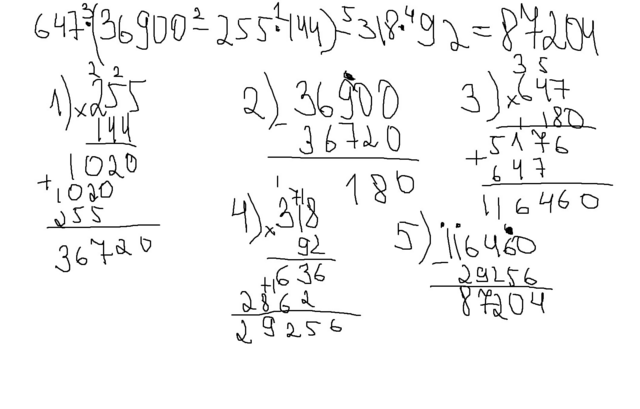 647·(36900-255·144)-318·92=87204
3 2 1 5 4
1) 2 2
×255
144
1020
+1020
255
36720
2) -36900
36720
180
3) 3 5
×647
180
+5176
647
116460
4) ×318
92
636
+2862
29256
5) -116460
29256
87204